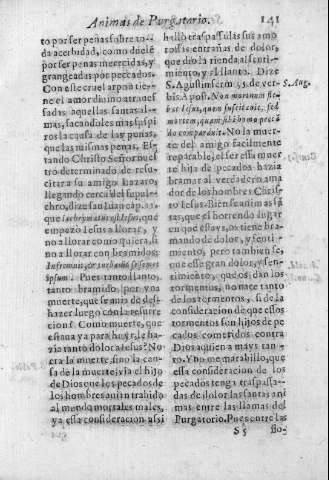 Animas de Purgatorio. 141
to por ser peñas sobre to-
da acerbidad, como duele
por ser penas merecidas, y
grangeadas por peccados.
Con este cruel arpon tie-
ne el amor divino atraue-
sadas aquellas santas al-
mas, sacandoles mas suspi-
ros la causa de las penas,
que las mismas penas. Es-
tando Christo Señor nues-
tro determinado de resu-
citar a su amigo Lazaro,
llegando cerca del sepul-
chro, dize san Iuan cap.
que lachrymatus est Iesus, que
empezó Iesus a llorar, y
no a llorar como quiera, si
no a llorar con bramidos:
Infremuit, & turbauit se ipsum
ipsum. Pues tanto llanto,
tanto bramido, por vna
muerte, que se auia de des-
hazer luego con la resurre-
cion? Como muerte, que
estaua ya para huyr, le ha-
zia tanto dolor a Iesus? No
era la muerte, sino la cau-
sa de la muerte; via el hijo
de Dios que los pecados de
los hombres auian trahido
al mundo mortales males,
ya esta consideracion assi
halló traspassadas sus amo
rosissimas entrañas de dolor,
que dio la rienda al senti-
miento, y al llanto. Dize
S. Agustin serm. 5. de ver-
bis Apost. Non mortuum fle-
bat Iesus, quem suscitauit, sed
mortem, quam sibi homo pecca
do comparauit. No la muer-
te del amigo facilmente
reparable, el ser essa muer-
te hija de pecados hazia
bramar al verdadero ama
dor de los hombres Chris-
to Iesus. Bien sè animas san
tas, que el horrendo lugar
en que estays, os tiene bra-
mando de dolor, y senti-
miento, pero tambien se,
que esse gran dolor, y sen-
timiento, que os dan los
tormentos, no nace tanto
de los tormentos, si de la
consideracion de que essos
tormentos son hijos de pe
cados cometidos contra
Dios a quien amays tan-
to. Y no me marabillo, que
essa consideracion de los
pecados tenga traspassa-
das de dolor las santas ani
mas entre las llamas del
Purgatorio. Pues entre las
S. Aug.
S 5 flo-